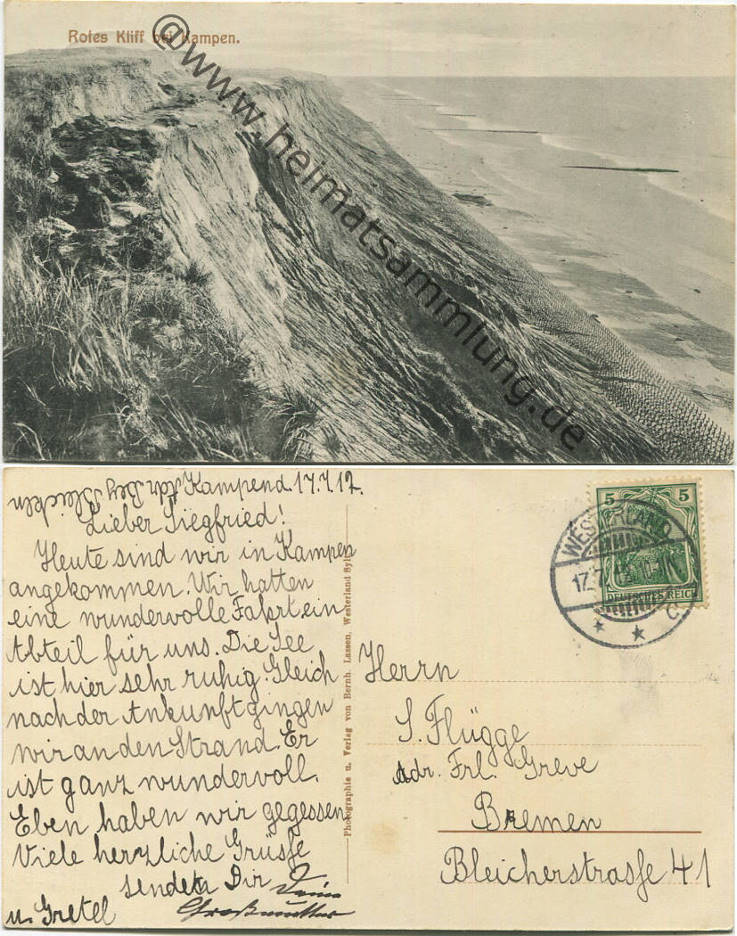 Rotes Kliff bei Kampen.
@www.heimatsammlung.de
Kampen d. 17.7.12.
Lieber Siegfried!
Heute sind wir in Kampen
angekommen. Wir hatten
eine wundervolle Fahrt, ein
Abteil für uns. Die See
ist hier sehr ruhig. Gleich
nach der Ankunft gingen
wir an den Strand. Er
ist ganz wundervoll.
Eben haben wir gegessen
Viele herzliche Grüsse
senden Dir Deine
Grossmutter
u. Gretel
Photographie u. Verlag von Bernh. Lassen, Westerland Sylt
WESTERLAND
5 5
DEUTSCHES REICH
Herrn
S. Flügge
adr. Frl. Greve
Bremen
Bleicherstrasse 41